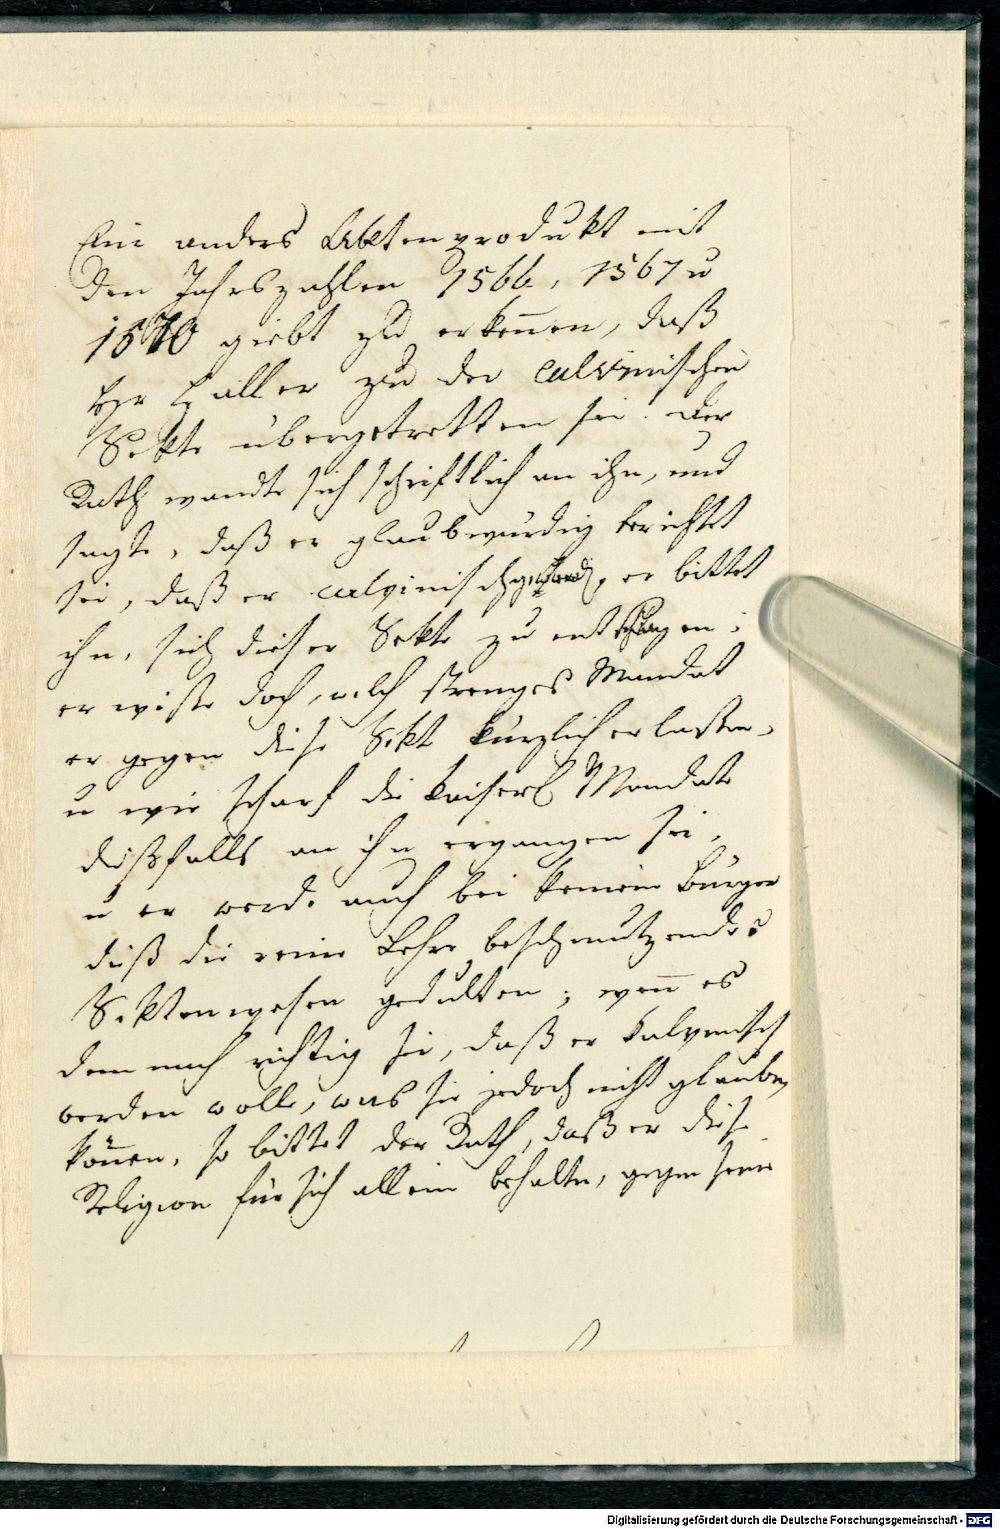 Ein anders Aktenprodukt mit
den Jahrszahlen 1566, 1567 u
1570 giebt zu erkennen, daß
Hr Haller zu der calvinischen
Sekte übergetretten sei. Der
Rath wandte sich schriftlich an ihn, und
sagte, daß er glaubwürdig berichtet
sei, daß er calvinisch, er bittet
ihn, sich dieser Sekte zu entschlagen;
er wiße doch, welch strenges Mandat
er gegen diese Sekt kürzlich erlaßen,
u wie scharf die kaiserl Mandate
dießfalls an ihn ergangen sei,
u er werde auch bei keinem Bürger
dieß die reine Lehre beschmutzendes
Sektenwesen gedulten; wenn es
demnach richtig sei, daß er kalvinisch
werden wolle, was sie jedoch nicht glauben
können, so bittet der Rath, daß er diese
Religion für sich allein behalte, gegen seine
Digitalisierung gefördert durch die Deutsche Forschungsgemeinschaft - DFG